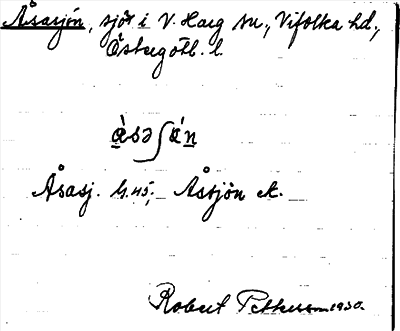 Åsasjön, sjö i V. Harg sn, Vifolka hd,
Östergötl. l.
Åsasj. G.45; Åsjön ek.
Robert Pettersson 1930.